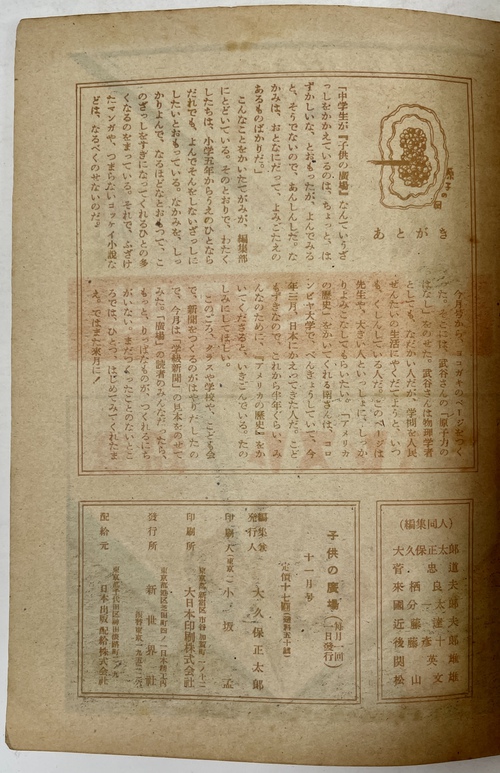 原子の図
あとがき
「中学生が『子供の廣場』なんていうざ
っしをかかえているのは、ちょっと、は
ずかしいな、とおもったが、よんでみる
と、そうでないので、あんしんした。な
かみは、おとなにだって、よみごたえの
あるものばかりだ。」
こんなことをかいたてがみが、編集部
にとどいている。そのとおりで、わたく
したちは、小学五年からうえのひとなら
だれでも、よんでそんをしないざっしに
したいとおもっている。なかみを、しっ
かりよんで、なるほどなとおもって、こ
のざっしをすきになってくれるひとの多
くなるのをまっている。それで、ふざけ
たマンガや、つまらないコッケイ小説な
どは、なるべくのせないのだ。
今月号から、ヨコガキのページをつく
った。そこには、武谷さんの「原子力の
はなし」をのせた。武谷さんは物理学者
としても、なだかい人だが、学問を人民
ぜんたいの生活にやくだてようと、いつ
も、くしんしている人だ。このページは
先生や、大きい人といっしょに、しっか
りよみこなしてもらいたい。「アメリカ
の歴史」をかいてくれる
さんは、コロ
ンビヤ大学で、べんきょうしていて、今
年三月、日本にかえってきた人だ。こど
もずきなので、これから半年ぐらい、み
んなのために、『アメリカの歴史』をか
いてくださると、いきごんでいる。たの
しみにしてほしい。
このごろ、クラスや学校や、こども会
で、新聞をつくるのがはやりだしたの
で、今月は「学級新聞」の見本をのせて
みた。「廣場」の読者のみんなだったら、
もっと、りっぱなものが、つくれるにち
がいない。まだつくったことのないとこ
ろでは、ひとつ、はじめてみてくれたま
え。ではまた来月に!
(編集同人)
大久保正太郎
菅忠道
来栖良夫
國分一太郎
近藤達夫
後藤彦十郎
関英雄
松山文雄
子供の廣場(毎月一回一日発行)
十一月号
定價十七圓(送料五十銭)
編集兼発行人 大久保正太郎
印刷人 小坂孟
印刷所 大日本印刷株式会社
発行所 新世界社
配給元 日本出版配給株式会社